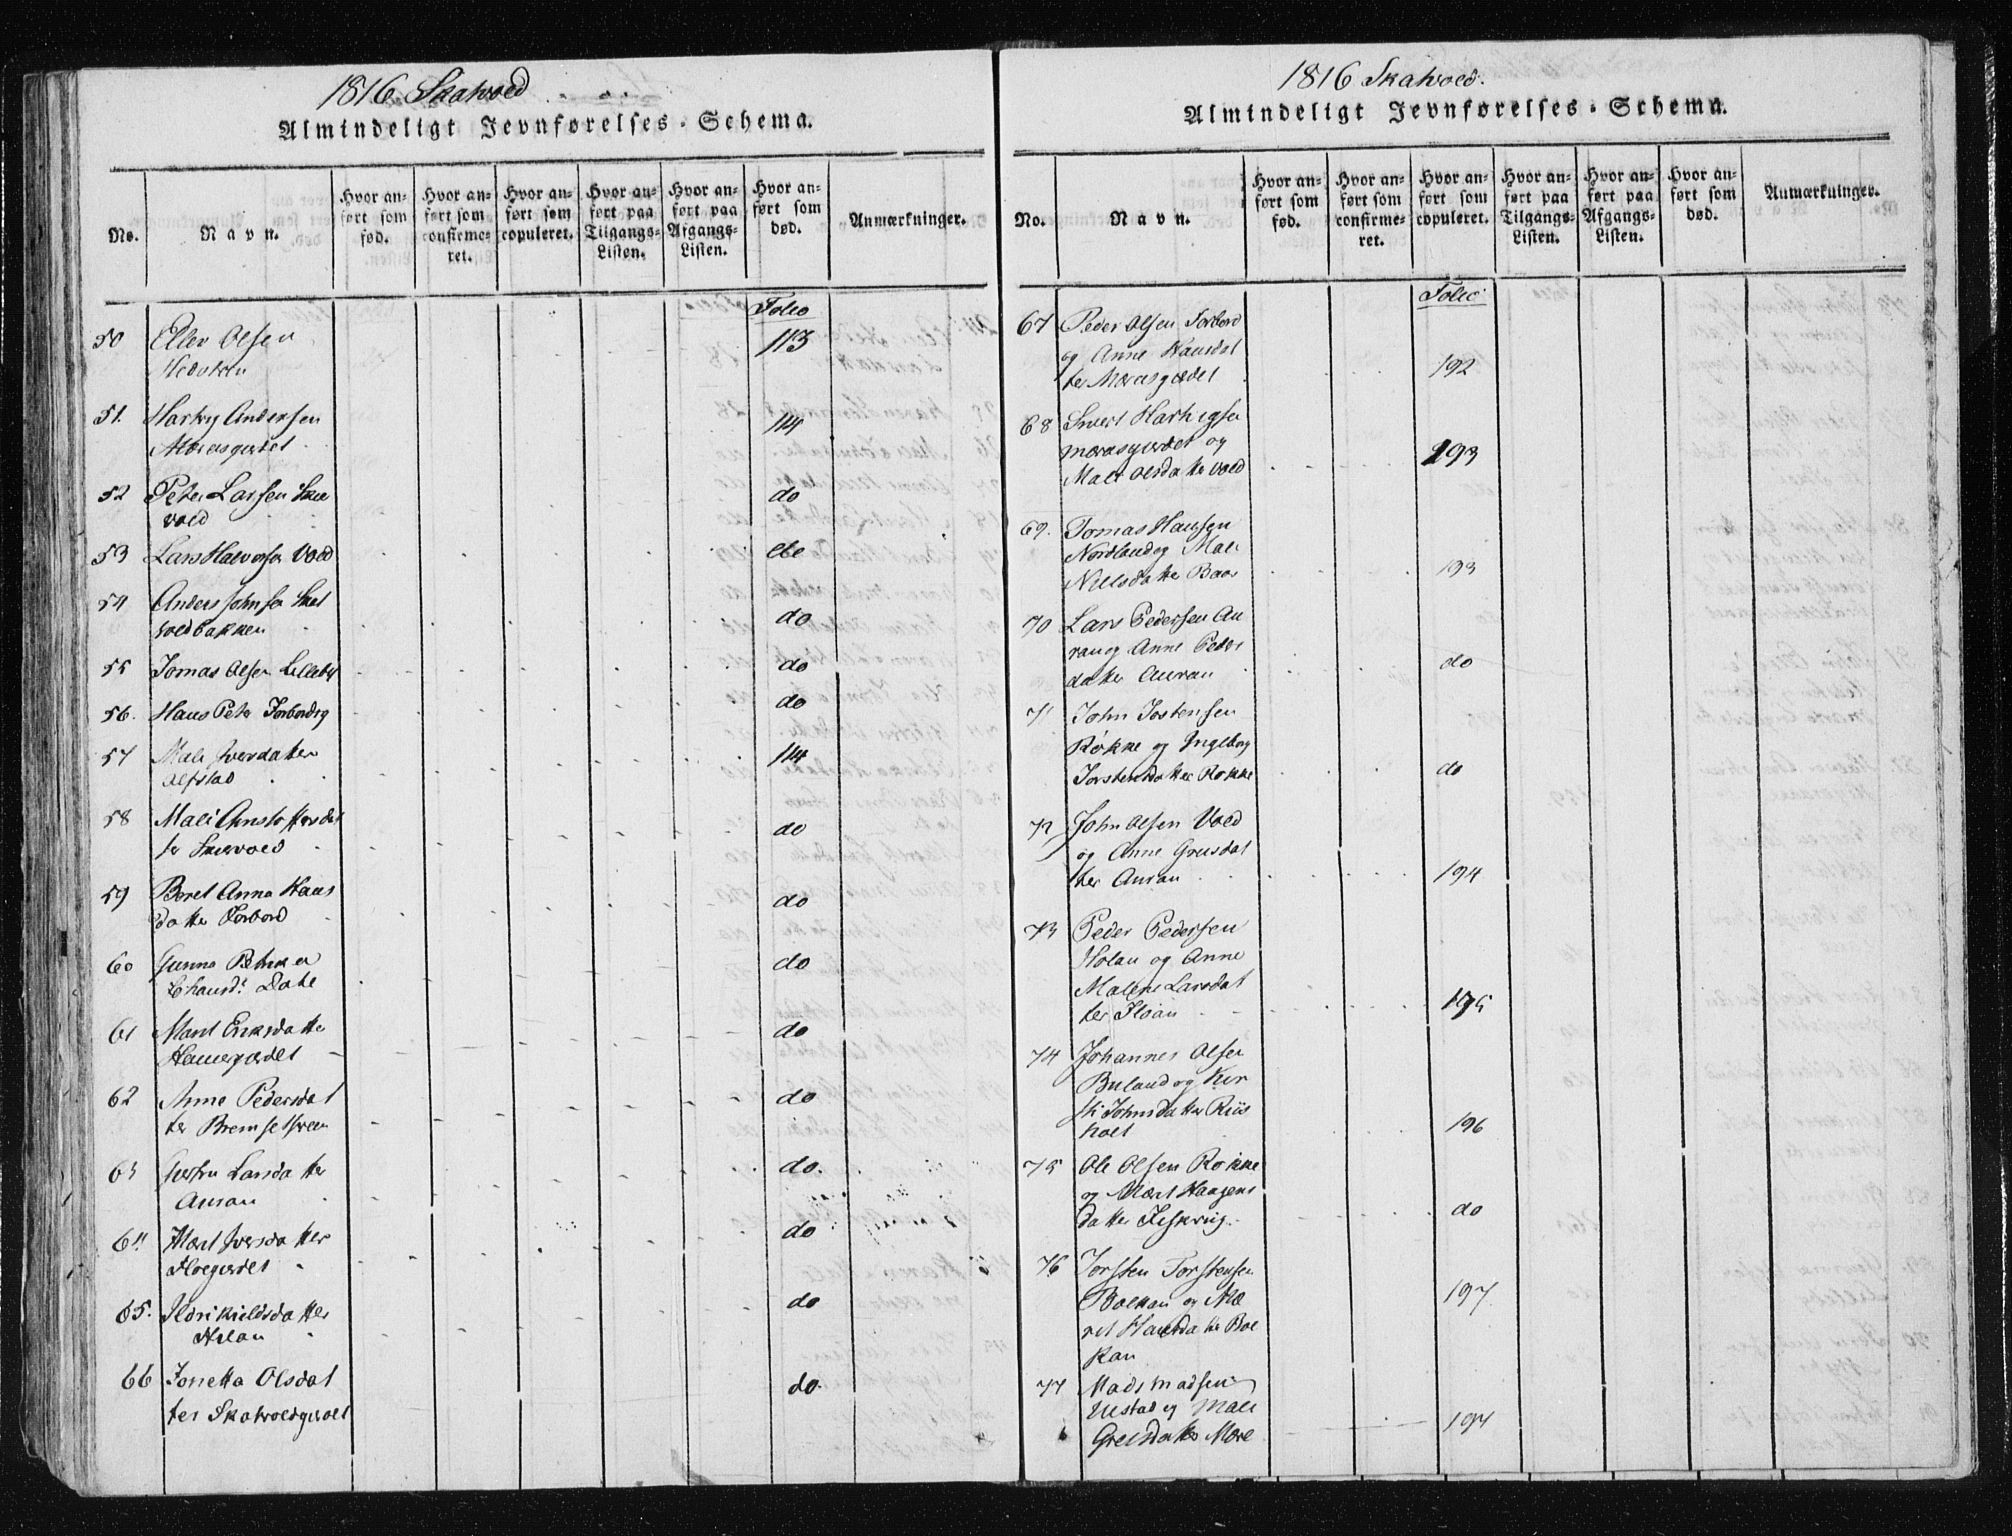 1816 Skatvold
Almindeligt Jevnførelses-Schema.
No.
Navn.
Hvor anført som fød.
Hvor anført som confirmeret.
Hvor anført som copuleret.
Hvor anført paa Tilgangs-Listen.
Hvor anført paa Afgangs-Listen.
Hvor anført som død.
Anmærkninger.
Folio
50 Ellev Olsen 113
51. Hartvig Andersen 114
Moræsgierdet
52 Peter Larsen Skie do
vold
53 Lars Halvorsen Vold do
54 Anders Johnsen Skat
voldbakken do
55 Tomas Olsen Lilleby do
56. Hans Peter Forbordsg do
57 Mali Iversdatter 114
Alfstad
58 Mali Christophersdat do
ter Skiervold
59 Beret Anna Haas
datter Forbord do
60 Gunna do
61 Marit Eriksdatter do
62 Anne Pedersdat do
ter
63 Larsdatter do.
Auran
64 Marit Iversdatter do
65. do
66 Jonetta Olsdat do.
ter Skatvoldgierdet
1816 Skatvold.
Almindeligt Jevnførelses-Schema.
No.
Navn.
Hvor anført som fød.
Hvor anført som confirmeret.
Hvor anført som copuleret.
Hvor anført paa Tilgangs-Listen.
Hvor anført paa Afgangs-Listen.
Hvor anført som død.
Anmærkninger.
Folio
67 Peder Olsen Forbord
og Anne Hansdat
ter Moræsgierdet 192
68 Sivert Hartvigsen
Moræsgierdet og 193
Malt Olsdatter Vold
69. Tomas Hansen
Nordland og Mali
Nillsdatter Baas 193
70 Lars Pedersen Au
ran og Anne Peders
datter Auran do
71 John Tostensen
Røkke og Ingeborg
Torstensdatter Røkke do
72 John Olsen Vold
og Anne Greisdat
ter Auran 194
73 Peder Pedersen
Holan og Anne
Malene Larsdat 195
ter Floan
74 Johannes Olsen
Buland og Kir
sti Johnsdatter Riis
holt 196
75 Ole Olsen Røkke
og Marit Haagens
datter do
76 Torsten Torstensen
Bolkan og Mæ 197
rit Hansdatter Bol
kan
77 Mads Madsen
og Mali
Greisdatter Mære 197